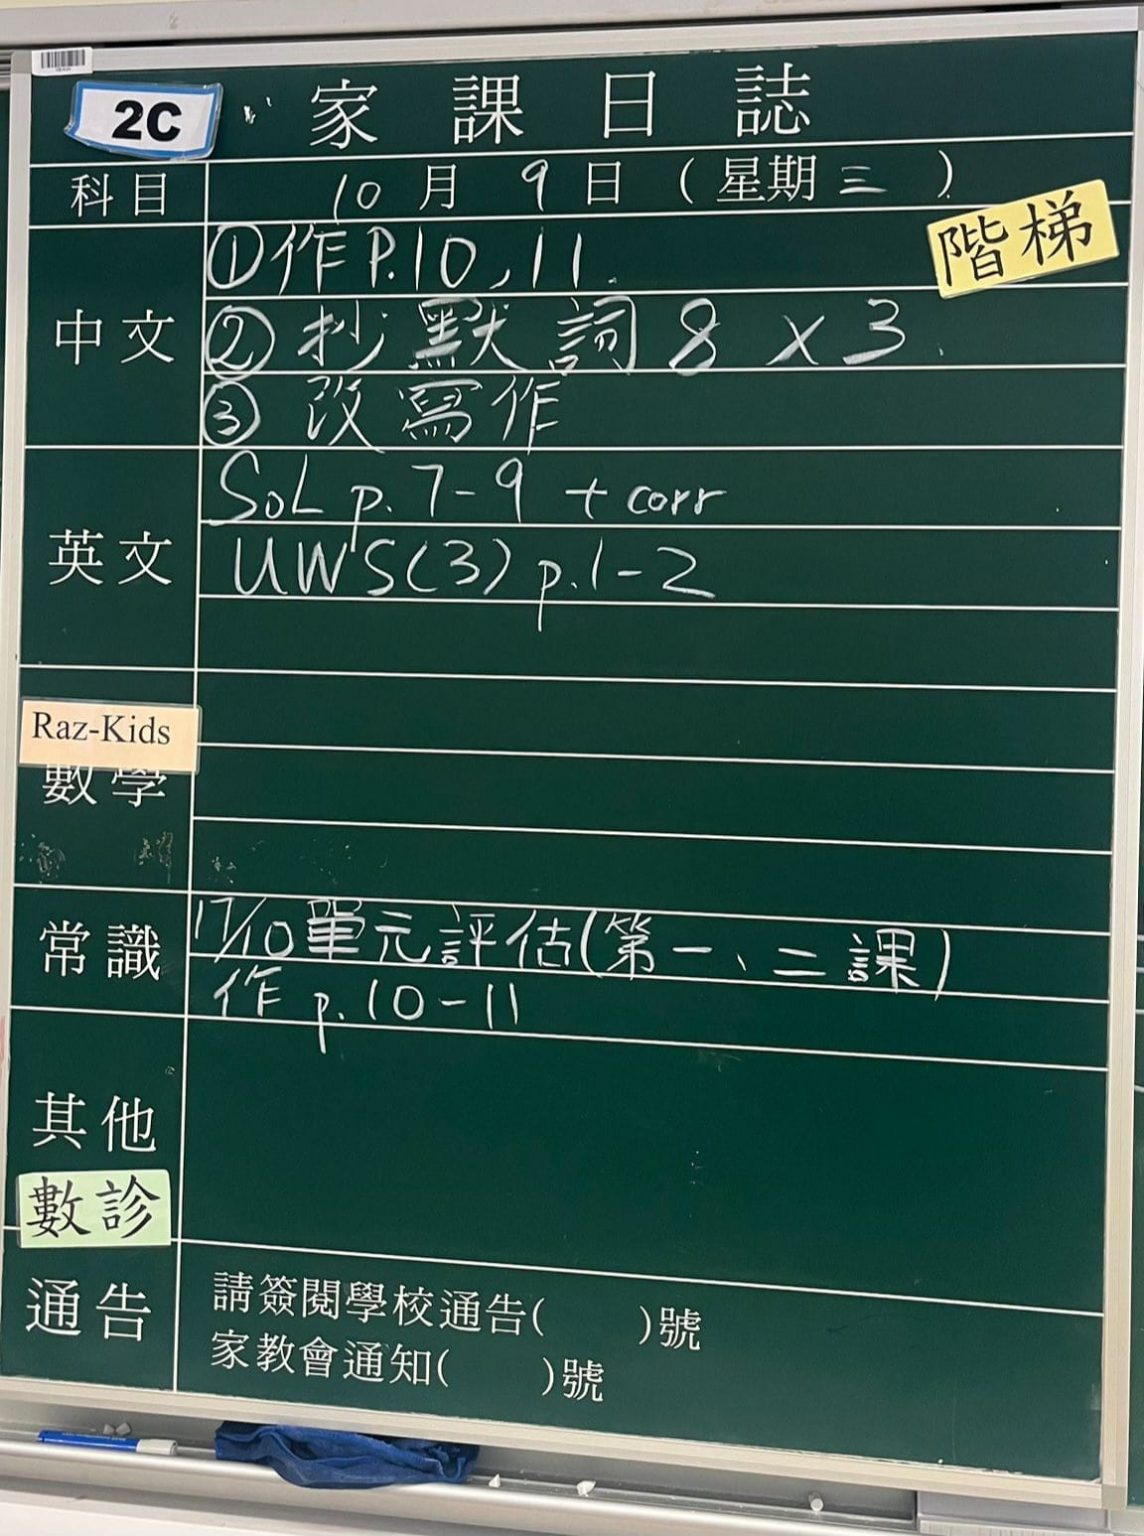 2C
家課日誌
科目 10月9日(星期三)
階梯
中文
①作P.10,11
②抄默詞8 x 3.
③改寫作
英文
SoL p.7-9 + corr
UWS(3) p.1-2
Raz-Kids
數學
常識
17/10單元評估(第一、二課)
作 p.10-11
其他
數診
通告
請簽閱學校通告( )號
家教會通知( )號